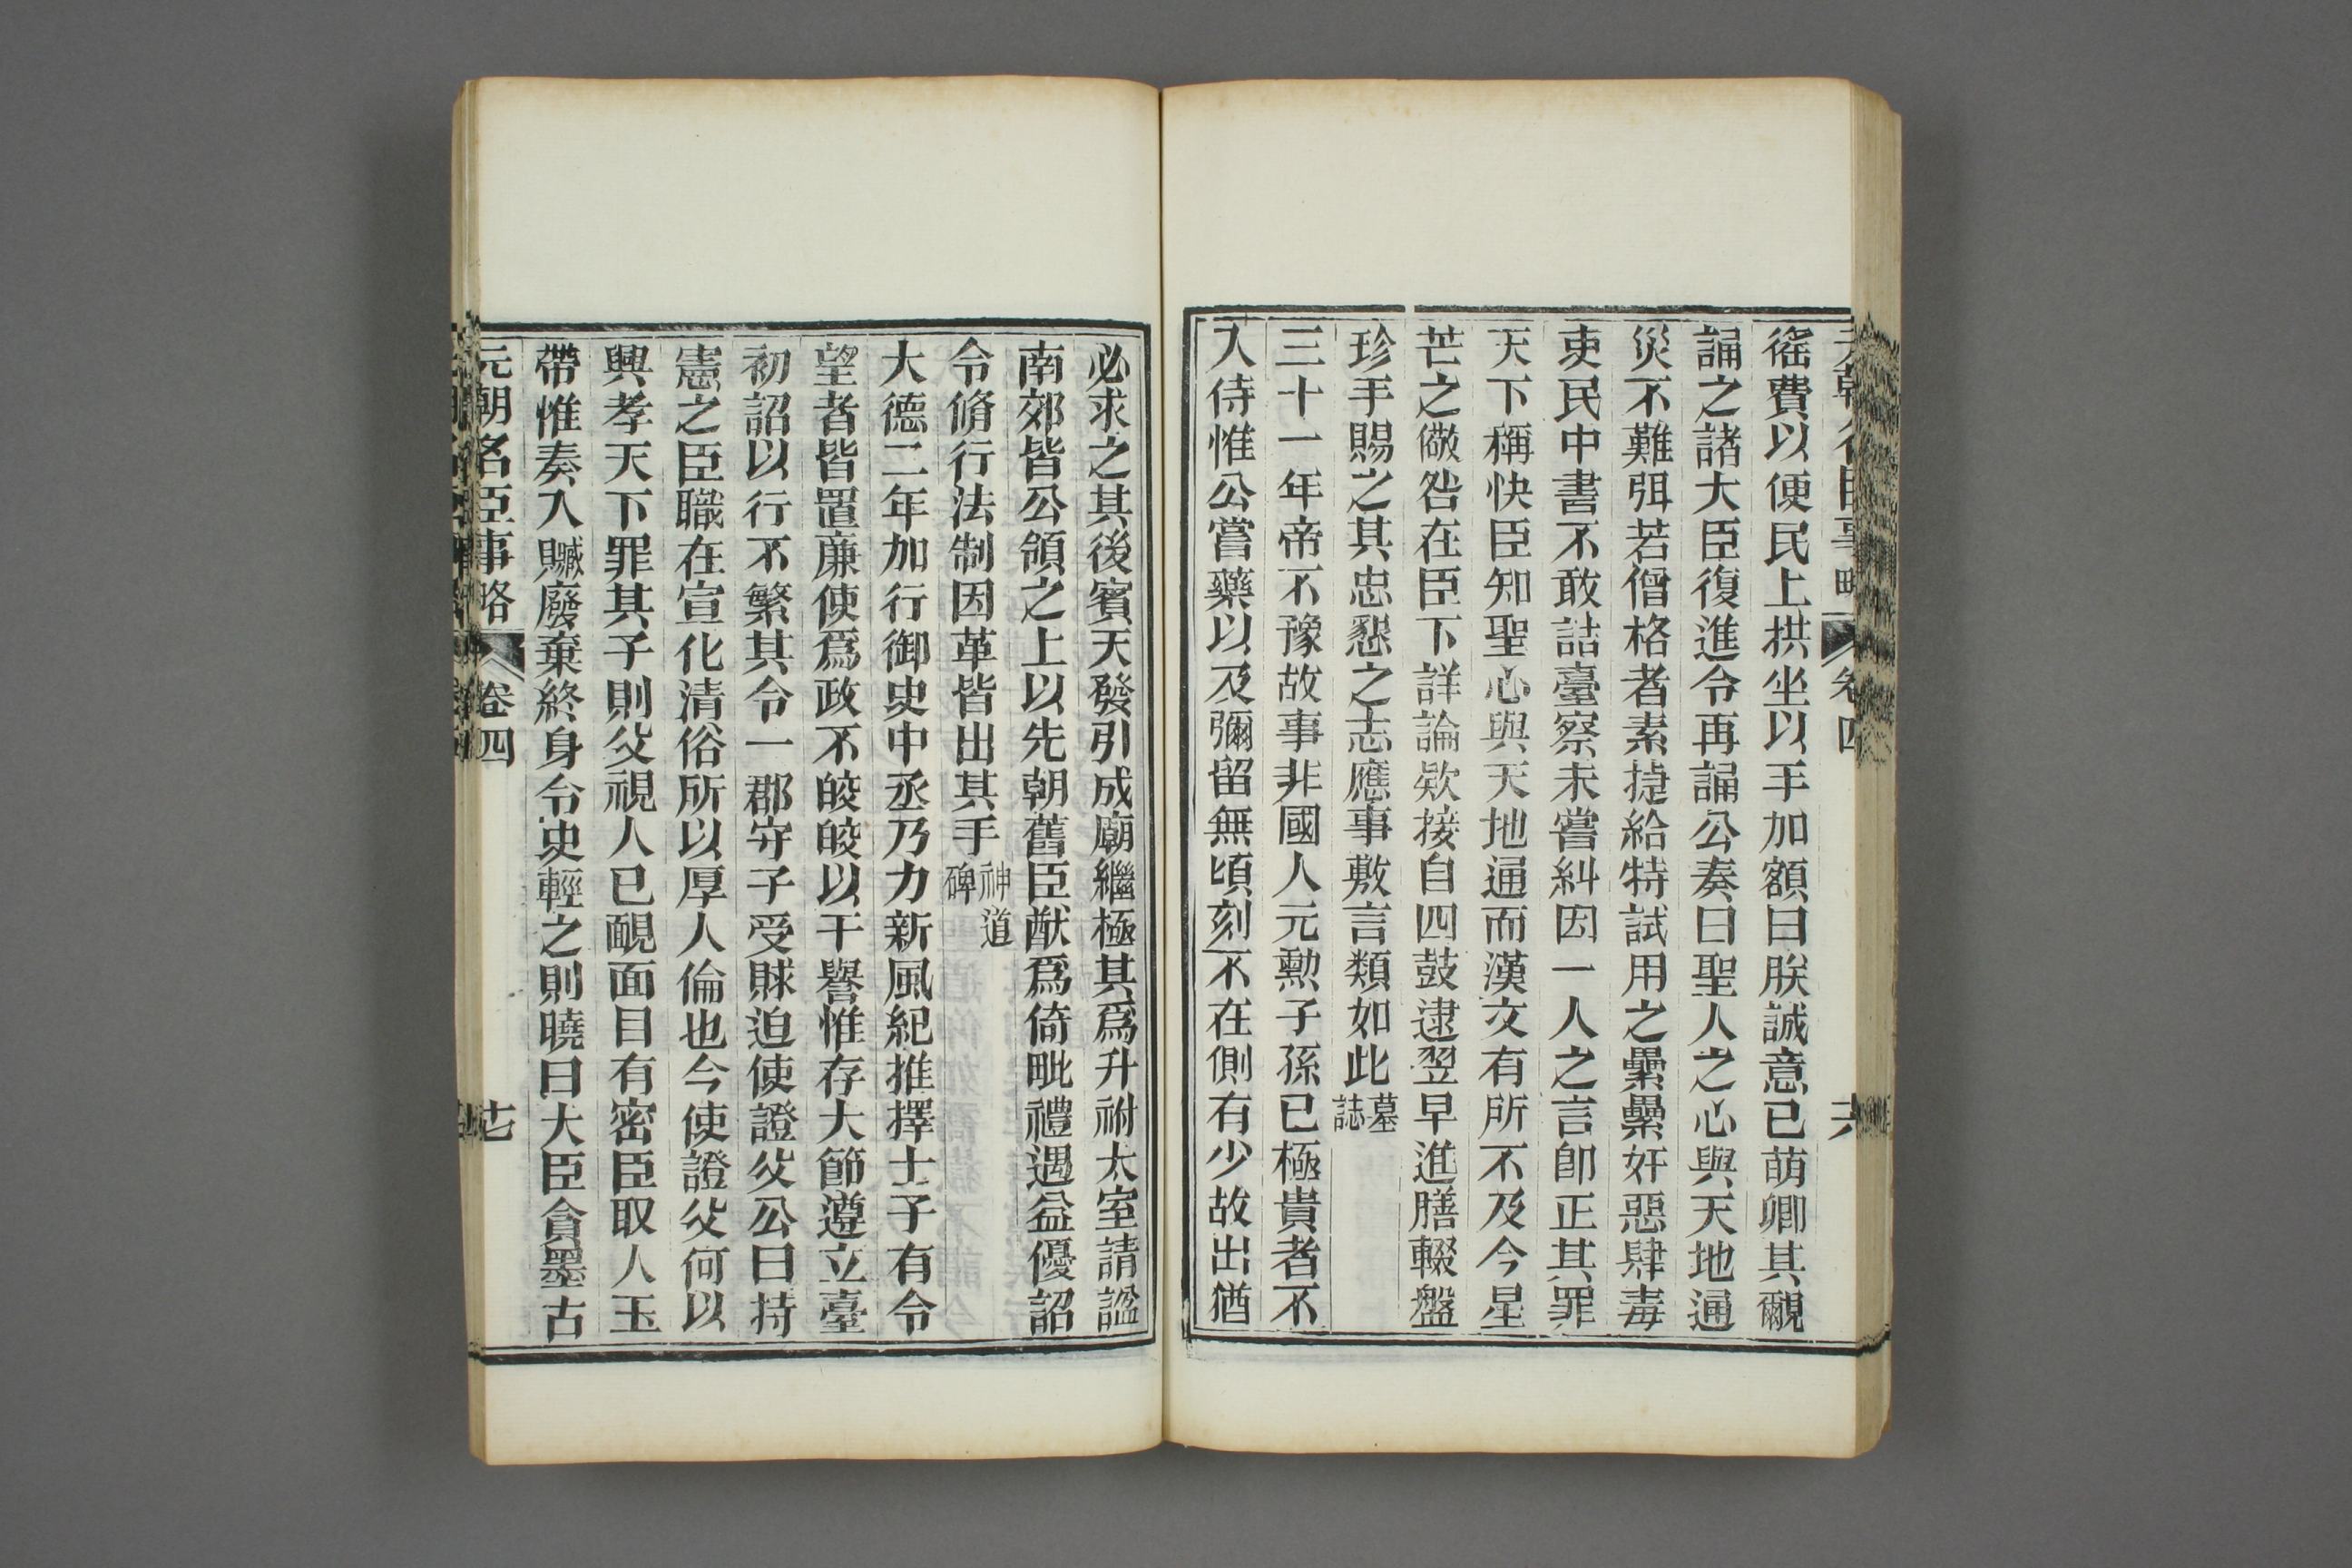 徭費以便民上拱坐以手加額曰朕誠意已萌卿其覼
誦之諸大臣復進令再誦公奏曰聖人之心與天地通
災不難弭若僧格者素捷給特試用之纍纍奸惡肆毒
吏民中書不敢詰臺察未嘗糾因一人之言卽正其罪
天下稱快臣知聖心與天地通而漢文有所不及今星
芒之儆咎在臣下詳論欵接自四鼓逮翌早進膳輟盤
珍手賜之其忠懇之志應事敷言類如此墓誌
三十一年帝不豫故事非國人元勲子孫已極貴者不
入侍惟公嘗藥以及彌留無頃刻不在側有少故出猶
必求之其後賓天發引成廟繼極其爲升祔太室請諡
南郊皆公領之上以先朝舊臣猷爲倚毗禮遇益優詔
令脩行法制因革皆出其手神道碑
大德二年加行御史中丞乃力新風紀推擇士子有令
望者皆置廉使爲政不皎皎以干譽惟存大節遵立臺
初詔以行不繁其令一郡守子受賕迫使證父公曰持
憲之臣職在宣化清俗所以厚人倫也今使證父何以
興孝天下罪其子則父視人已靦面目有密臣取人玉
帶惟奏入贓廢棄終身令史輕之則曉曰大臣貪墨古
元朝名臣事略 卷四 十七